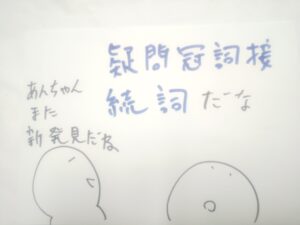 疑問冠詞接
続詞だな
あんちゃん
また
新発見だね